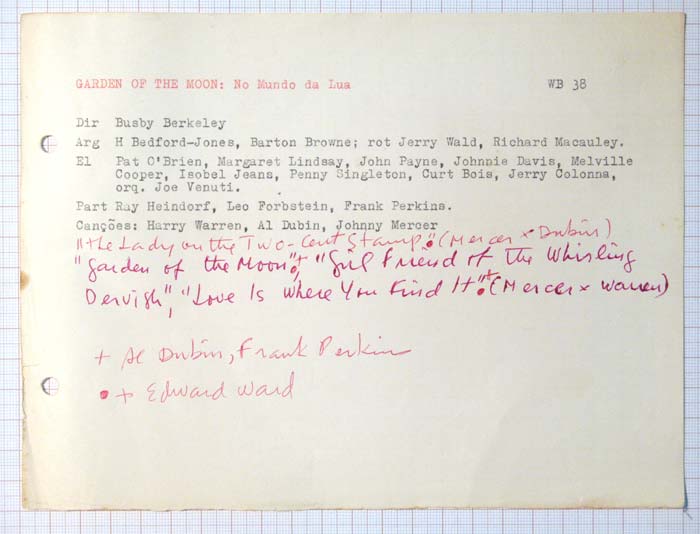 GARDEN OF THE MOON: No Mundo da Lua WB 38
Dir Busby Berkeley
Arg H Bedford-Jones, Barton Browne; rot Jerry Wald, Richard Macauley.
El Pat O'Brien, Margaret Lindsay, John Payne, Johnnie Davis, Melville
Cooper, Isobel Jeans, Penny Singleton, Curt Bois, Jerry Colonna,
orq. Joe Venuti.
Part Ray Heindorf, Leo Forbstein, Frank Perkins.
Canções: Harry Warren, Al Dubin, Johnny Mercer
"The Lady on the Two-Cent Stamp" (Mercer x Dubin)
"Garden of the Moon"+, "Girl Friend of the Whirling
Dervish", "Love Is Where You Find It"+ (Mercer x Warren)
+ Al Dubin, Frank Perkin
• + Edward Ward